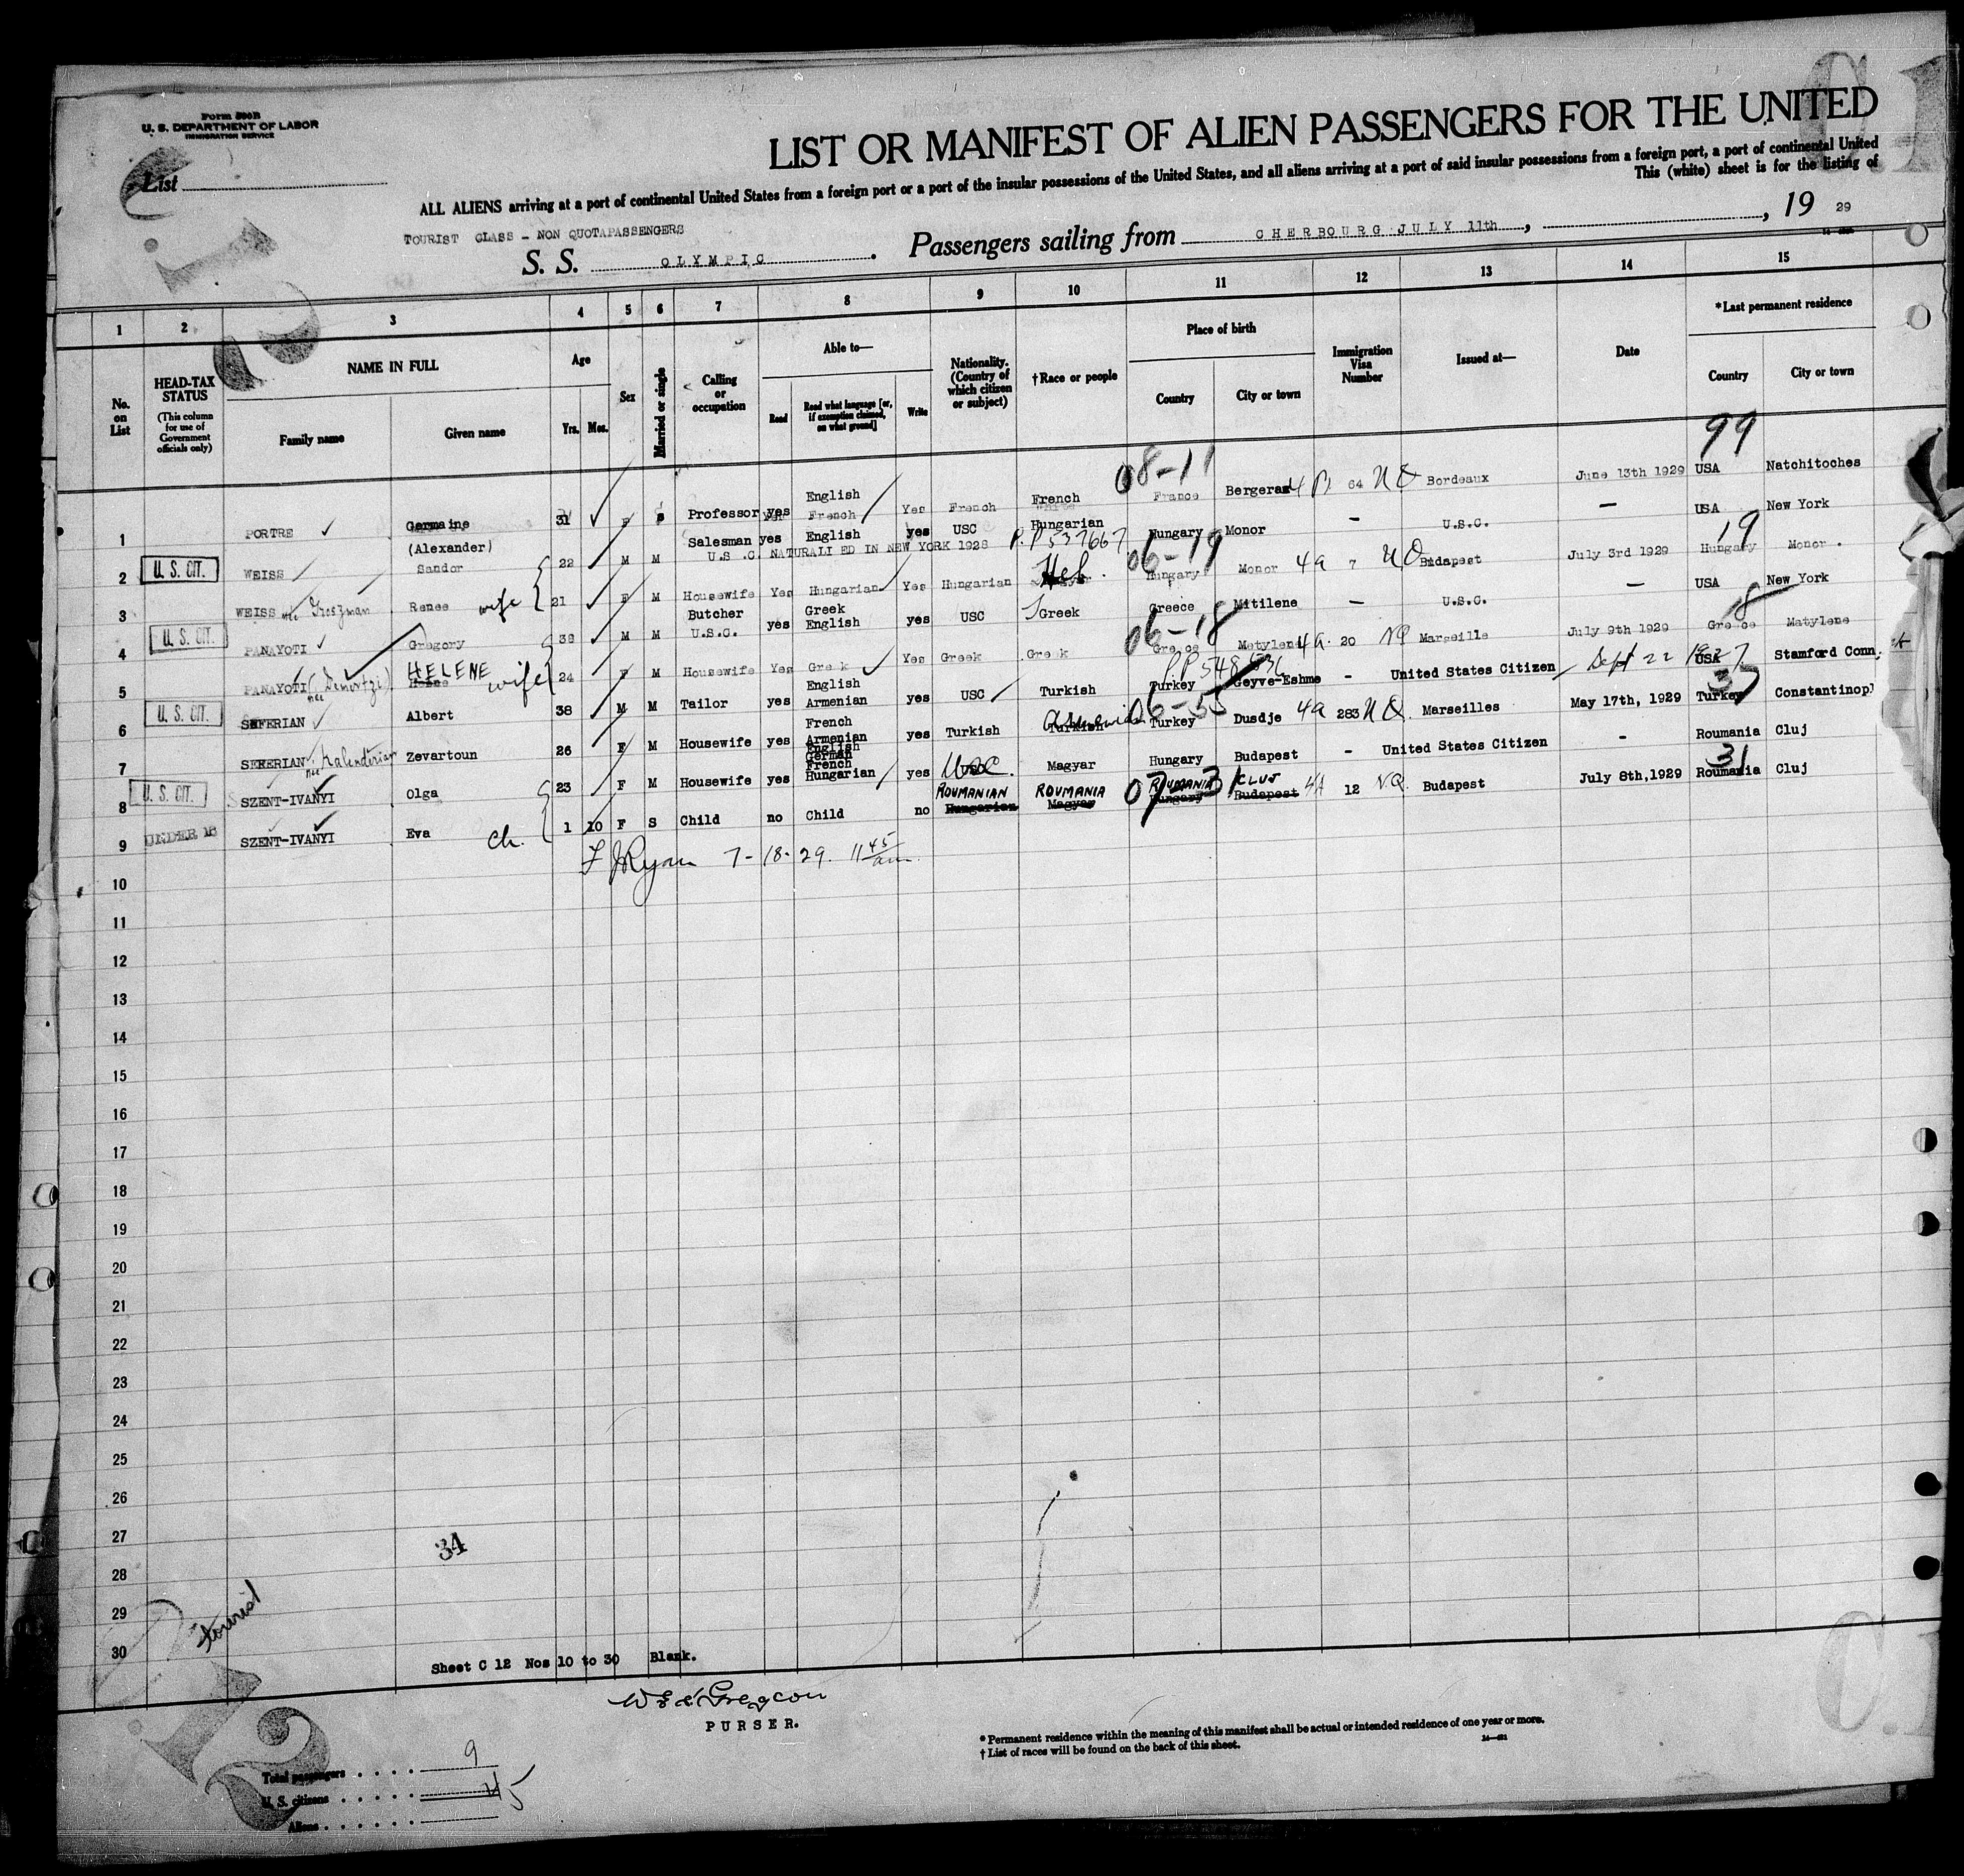 Form 500B
U. S. DEPARTMENT OF LABOR
IMMIGRATION SERVICE
List
LIST OR MANIFEST OF ALIEN PASSENGERS FOR THE UNITED
ALL ALIENS arriving at a port of continental United States from a foreign port or a port of the insular possessions of the United States, and all aliens arriving at a port of said insular possessions from a foreign port, a port of continental United
This (white) sheet is for the listing of
TOURIST CLASS - NON QUOTAPASSENGERS
S. S. OLYMPIC. Passengers sailing from CHERBOURG JULY 11th, , 19 29
1 2 3 4 5 6 7 8 9 10 11 12 13 14 15
No. on List
HEAD-TAX STATUS
(This column for use of Government officials only)
NAME IN FULL
Family name Given name
Age
Yrs. Mos.
Sex
Married or single
Calling or occupation
Able to—
Read Read what language [or, if exemption claimed, on what ground] Write
Nationality. (Country of which citizen or subject)
†Race or people
Place of birth
Country City or town
Immigration Visa Number
Issued at—
Date
*Last permanent residence
Country City or town
99
08-11
1 PORTRE Germaine 31 F S Professor yes English French Yes French French France Bergerac 4 B 64 NQ Bordeaux June 13th 1929 USA Natchitoches
2 U. S. CIT. WEISS (Alexander) Sandor 22 M M Salesman yes English yes USC Hungarian Hungary Monor — U.S.C. — USA New York
U.S.C. NATURALI ED IN NEW YORK 1928 P.P 537667
06-19 19
3 WEISS née Renee wife 21 F M Housewife Yes Hungarian Yes Hungarian Heb. Hungary Monor 4a 7 NQ Budapest July 3rd 1929 Hungary Monor.
4 U. S. CIT. PANAYOTI Gregory 38 M M Butcher U.S.C. yes Greek English yes USC Greek Greece Mitilene — U.S.C. — USA New York
06-18 8
5 PANAYOTI née HELENE wife 24 F M Housewife Yes Gre k Yes Greek Gre k Gre ce Metylene 4a. 20 NQ Marseille July 9th 1929 Gre ce Matylene
6 U. S. CIT. SEFERIAN Albert 38 M M Tailor yes English Armenian yes USC Turkish Turkey Geyve-Eshme - United States Citizen Sept 22 1927 USA Stamford Conn.
06-55
7 SEFERIAN née Kalenderian Zevartoun 26 F M Housewife yes French Armenian yes Turkish Armenian Turkish Turkey Dusdje 4a 283 NQ. Marseilles May 17th, 1929 Turkey Constantinopl
8 U. S. CIT. SZENT-IVANYI Olga 23 F M Housewife yes English German French Hungarian yes USC. Magyar Hungary Budapest - United States Citizen - Roumania Cluj
07-31 31
9 UNDER 16 SZENT-IVANYI Eva ch. 1 10 F S Child no Child no ROUMANIAN Hungarian ROUMANIA Magyar ROUMANIA Hungary CLUJ Budapest 4A 12 NQ. Budapest July 8th, 1929 Roumania Cluj
F J Ryan 7-18-29. 11 45 am.
10
11
12
13
14
15
16
17
18
19
20
21
22
23
24
25
26
27
34
28
29
tourist
30
Sheet C 12 Nos 10 to 30 Blank.
PURSER.
12
* Permanent residence within the meaning of this manifest shall be actual or intended residence of one year or more.
† List of races will be found on the back of this sheet.
Total passengers 9
U. S. citizens
Aliens